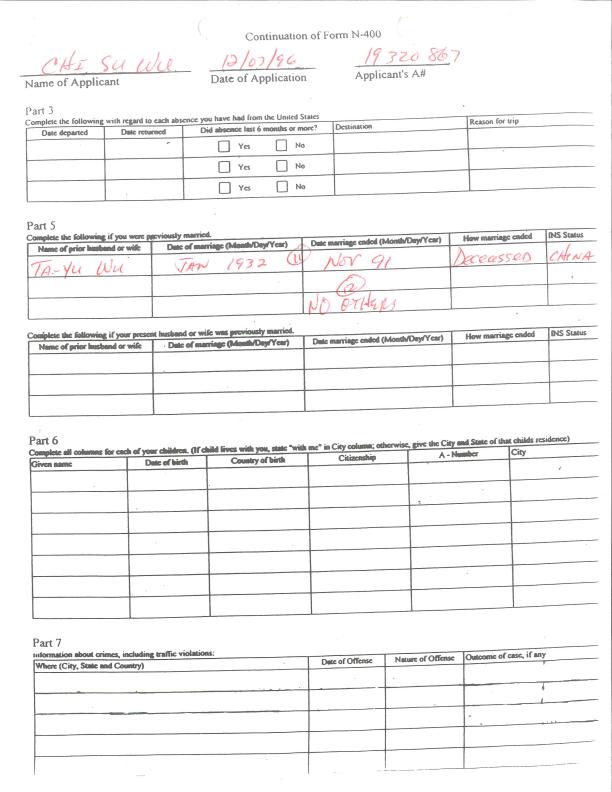 Continuation of Form N-400
CHI SU WU 12/07/96 19 320 867
Name of Applicant Date of Application Applicant's A#
Part 3
Complete the following with regard to each absence you have had from the United States
Date departed Date returned Did absence last 6 months or more? Destination Reason for trip
Yes No
Yes No
Yes No
Part 5
Complete the following if you were previously married.
Name of prior husband or wife Date of marriage (Month/Day/Year) Date marriage ended (Month/Day/Year) How marriage ended INS Status
TA-YU WU JAN 1932 NOV 91 Deceassed CHINA
NO OTHERS
Complete the following if your present husband or wife was previously married.
Name of prior husband or wife Date of marriage (Month/Day/Year) Date marriage ended (Month/Day/Year) How marriage ended INS Status
Part 6
Complete all columns for each of your children. (If child lives with you, state "with me" in City column; otherwise, give the City and State of that childs residence)
Given name Date of birth Country of birth Citizenship A - Number City
Part 7
Information about crimes, including traffic violations:
Where (City, State and Country) Date of Offense Nature of Offense Outcome of case, if any